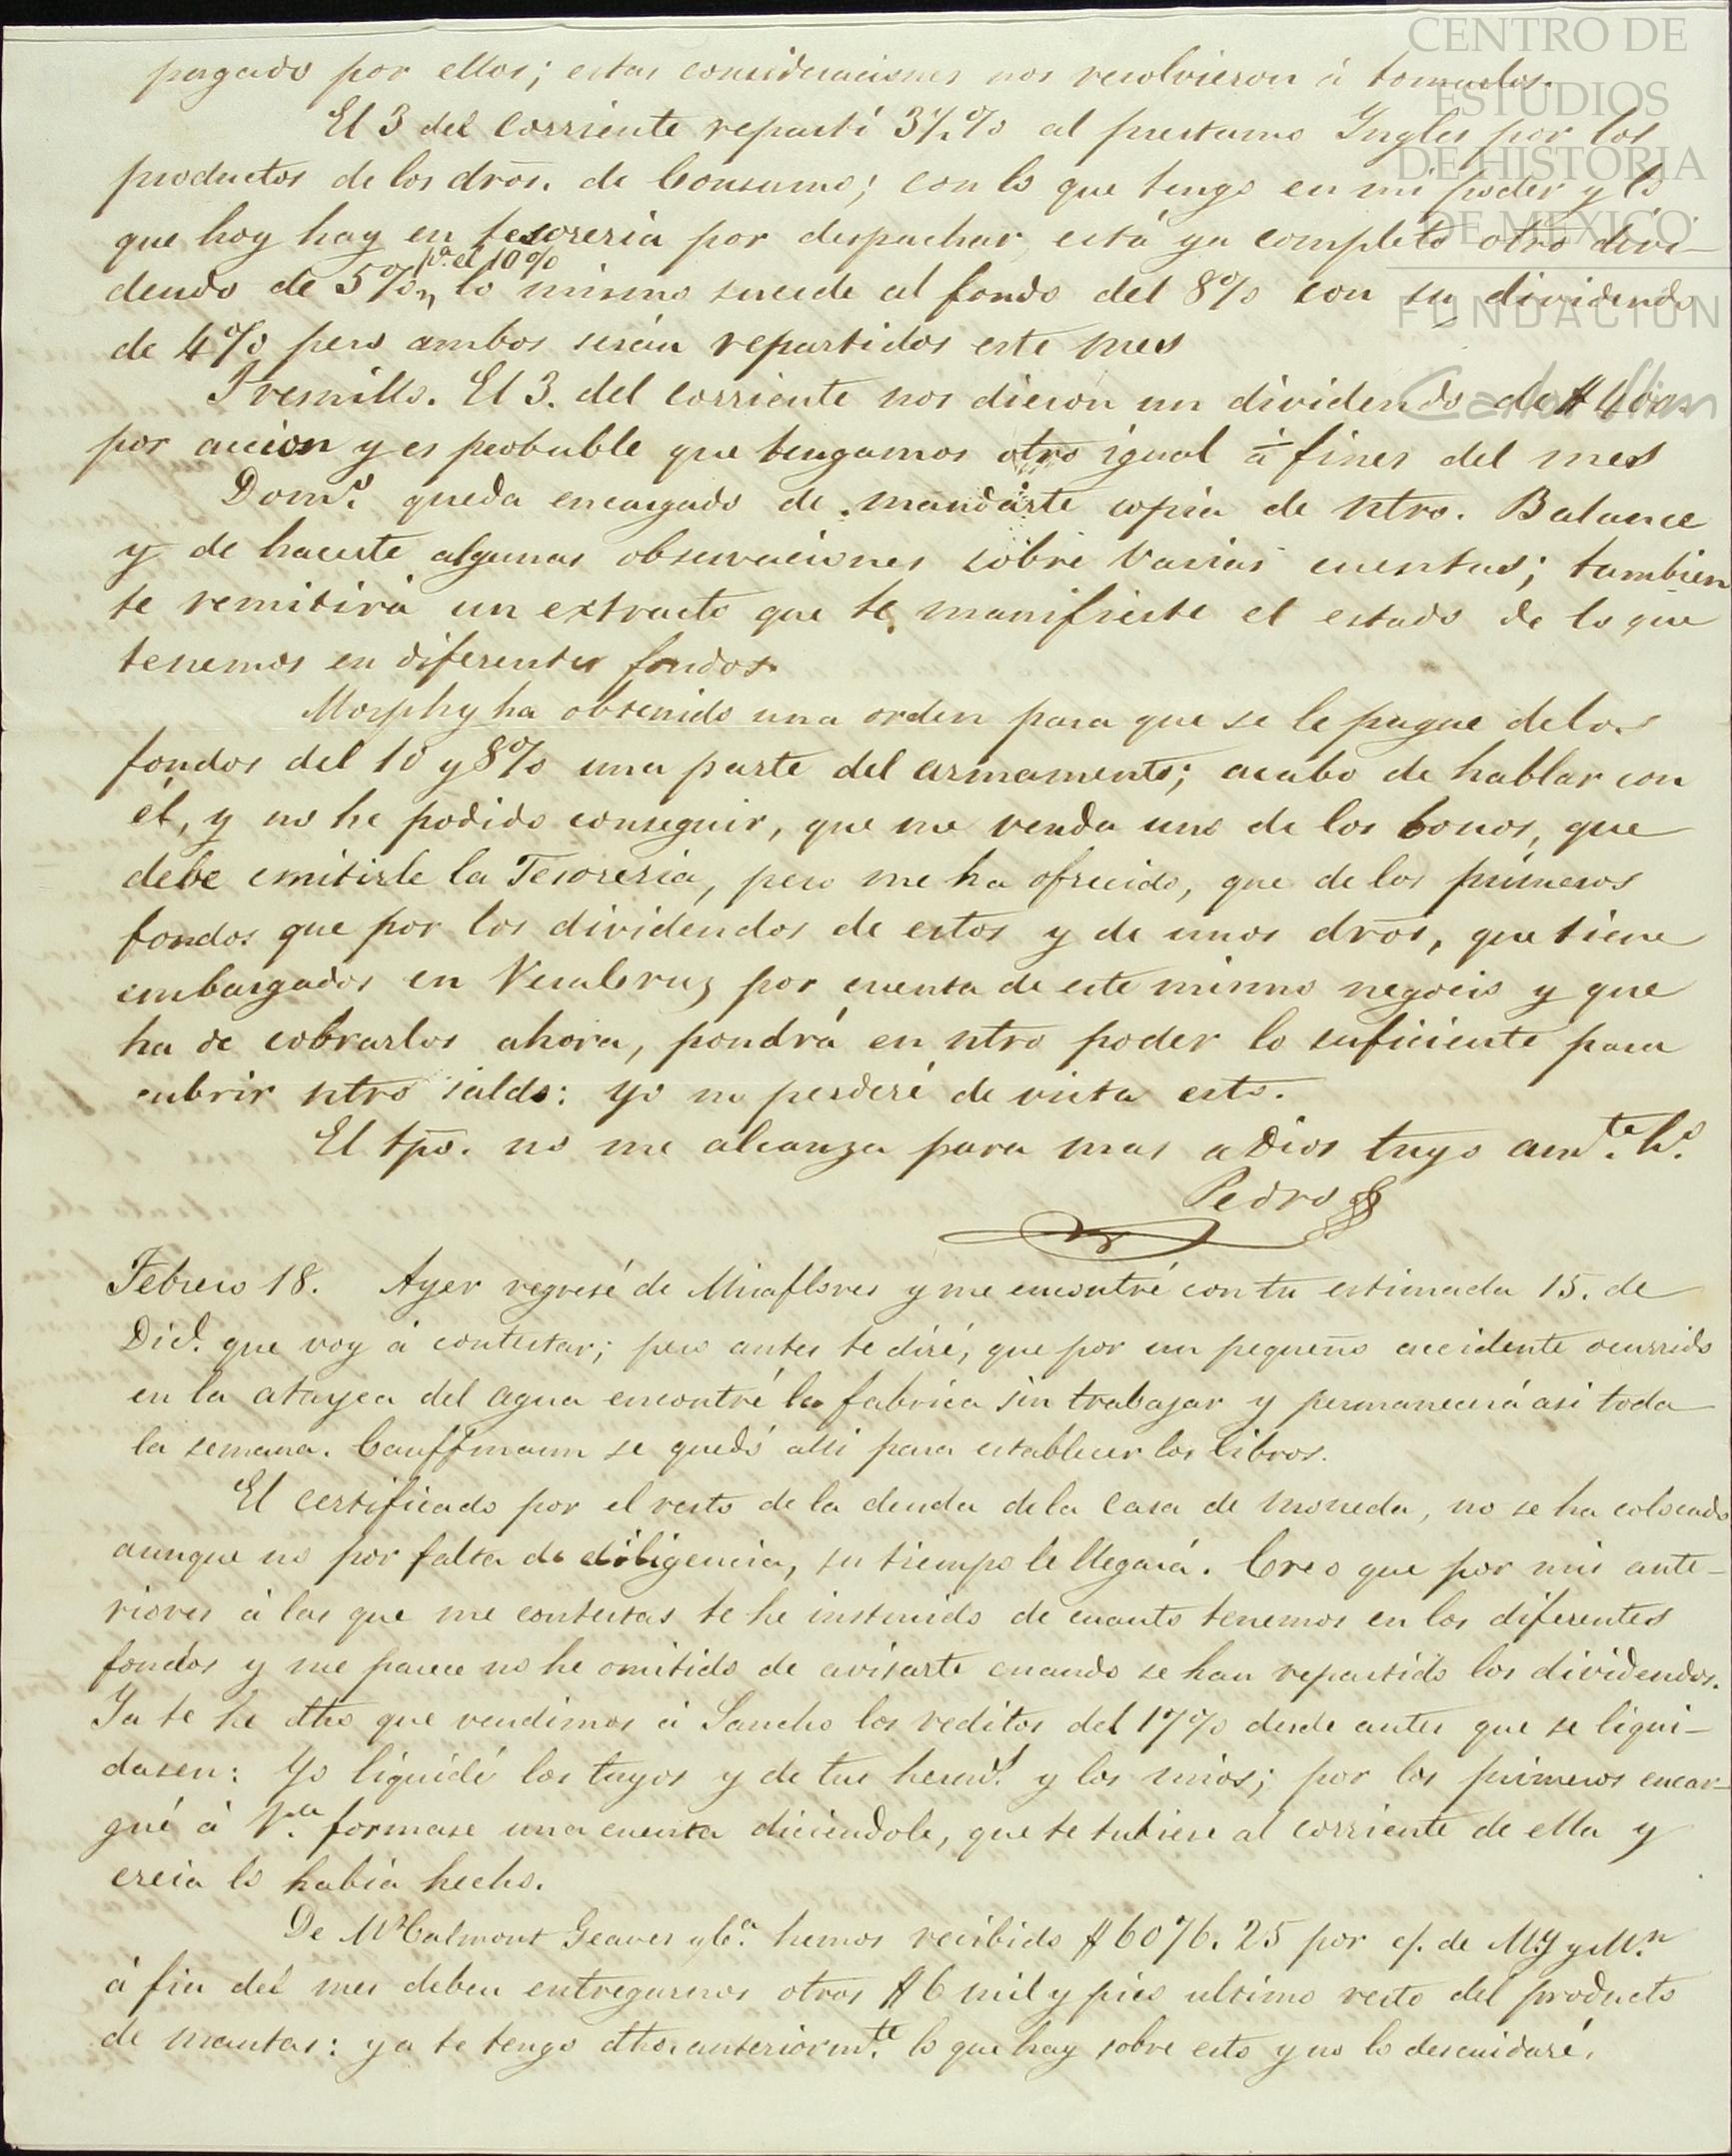 CENTRO DE
ESTUDIOS
DE HISTORIA
DE MEXICO
FUNDACIÓN
Carlos Slim
pagado por ellos; estas consideraciones nos resolvieron á tomarlos.
El 3 del corriente repartí 3½% al prestamo Ingles por los
productos de los dros. de Consumo; con lo que tengo en mi poder y lo
que hoy hay en tesoreria por despachar, está ya completo otro divi-
pa. el 10%
dendo de 5%, lo mismo sucede al fondo del 8% con su dividendo
de 4% pero ambos serán repartidos este mes
Fresnillo. El 3. del corriente nos dieron un dividendo de $
por accion y es probable que tengamos otro igual á fines del mes
Domo. queda encargado de mandarte copia de ntro. Balance
y de hacerte algunas observaciones sobre varias cuentas; tambien
te remitirá un extracto que te manifieste el estado de lo que
tenemos en diferentes fondos.
Morphy ha obtenido una orden para que se le pague de los
fondos del 10 y 8% una parte del armamento; acabo de hablar con
él, y no he podido conseguir, que me venda uno de los bonos, que
debe emitirle la Tesoreria, pero me ha ofrecido, que de los primeros
fondos que por los dividendos de estos y de unos dros, que tiene
embargados en Veracruz por cuenta de este mismo negocio y que
ha de cobrarlos ahora, pondrá en ntro poder lo suficiente para
cubrir ntro saldo: yo no perderé de vista esto.
El tpo. no me alcanza para mas aDios tuyo amte. ho.
Pedro
Febrero 18. Ayer regresé de Miraflores y me encontré con tu estimada 15. de
Dice. que voy á contestar; pero antes te diré, que por un pequeño accidente ocurrido
en la atagea del agua encontré la fabrica sin trabajar y permanecerá asi toda
la semana. Cauffmann se quedó alli para establecer los libros.
El certificado por el resto de la deuda de la casa de moneda, no se ha colocado
aunque no por falta de diligencia, su tiempo le llegará. Creo que por mis ante-
riores á las que me contestas te he instruido de cuanto tenemos en los diferentes
fondos y me parece no he omitido de avisarte cuando se han repartido los dividendos.
Ya te he dho que vendimos á Sancho los reditos del 17% desde antes que se liqui-
dasen: Yo liquidé los tuyos y de tus hermos. y los mios; por los primeros encar-
gué á Va. formase una cuenta diciendole, que te tubiese al corriente de ella y
creia lo habia hecho.
De McCalmont Geaves y Ca. hemos recibido $6076.25 por c/. de M.G y Mn.
á fin del mes deben entregarnos otros $6 mil y pico ultimo resto del producto
de mantas: ya te tengo dho anteriormte. lo que hay sobre esto y no lo descuidaré.